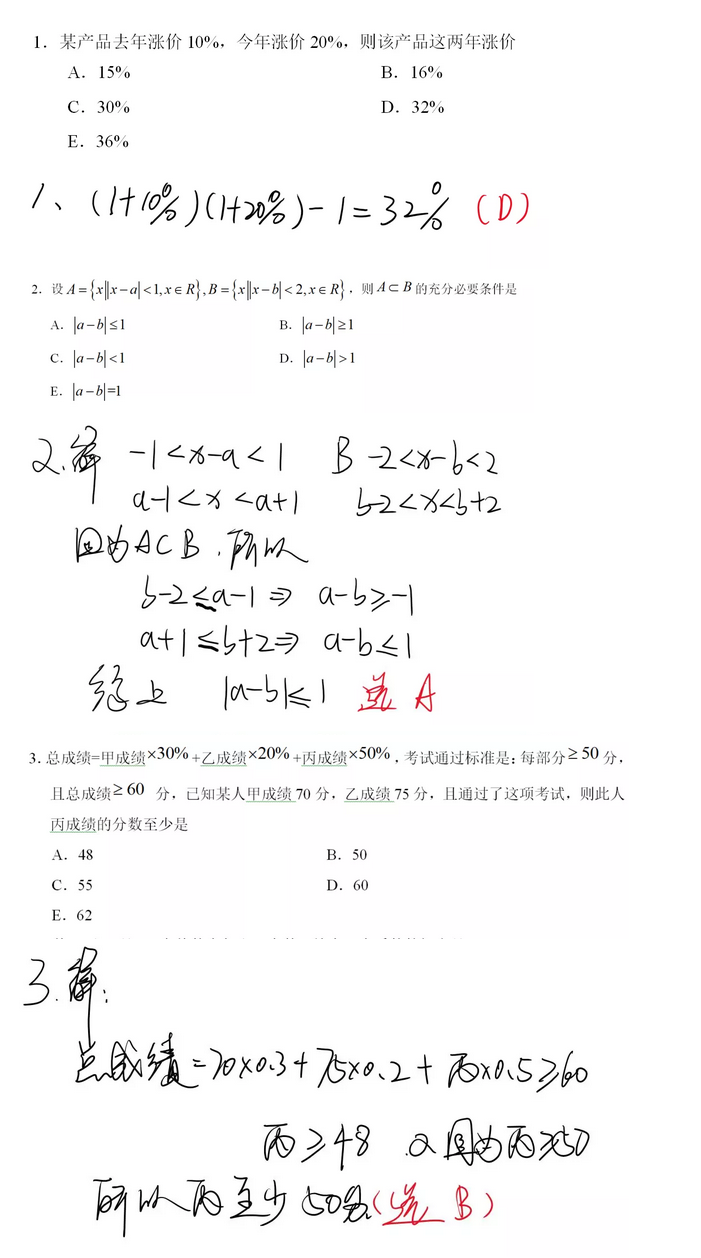 1. 某产品去年涨价 10%，今年涨价 20%，则该产品这两年涨价
A. 15% B. 16%
C. 30% D. 32%
E. 36%
1、(1+10%)(1+20%)-1=32% (D)
2. 设 A={x||x-a|<1,x∈R},B={x||x-b|<2,x∈R}，则 A⊂B 的充分必要条件是
A. |a-b|≤1 B. |a-b|≥1
C. |a-b|<1 D. |a-b|>1
E. |a-b|=1
2.解 -1<x-a<1 B -2<x-b<2
a-1<x<a+1 b-2<x<b+2
因为A⊂B，所以
b-2≤a-1⇒ a-b≥-1
a+1≤b+2⇒ a-b≤1
综上 |a-b|≤1 选 A
3. 总成绩=甲成绩×30%+乙成绩×20%+丙成绩×50%，考试通过标准是：每部分≥50分，
且总成绩≥60 分，已知某人甲成绩 70 分，乙成绩 75 分，且通过了这项考试，则此人
丙成绩的分数至少是
A. 48 B. 50
C. 55 D. 60
E. 62
3.解：
总成绩=70×0.3+75×0.2+丙×0.5≥60
丙≥48 又因为丙≥50
所以丙至少50分(选 B)